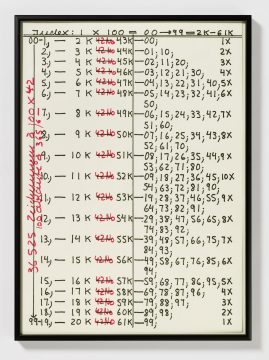 Index: 1 x 100 = 00→99=2K-61K
00-1,- 2 K 42No 43K-00; 1X
2,- 3 K 42No 44K-01; 10; 2X
3,- 4 K 42No 45K-02; 11; 20; 3X
4,- 5 K 42No 46K-03; 12; 21; 30; 4X
5,- 6 K 42No 47K-04; 13; 22; 31; 40; 5X
6,- 7 K 42No 48K-05; 14; 23; 32; 41; 6X
50;
7,- 8 K 42No 49K-06; 15; 24; 33; 42; 7X
51; 60;
8,- 9 K 42No 50K-07; 16; 25; 34; 43; 8X
52; 61; 70;
9,- 10 K 42No 51K-08; 17; 26; 35; 44; 9X
53; 62; 71; 80;
10,- 11 K 42No 52K-09; 18; 27; 36; 45; 10X
54; 63; 72; 81; 90;
11,- 12 K 42No 53K-19; 28; 37; 46; 55; 9X
64; 73; 82; 91;
12,- 13 K 42No 54K-29; 38; 47; 56; 65; 8X
74; 83; 92;
13,- 14 K 42No 55K-39; 48; 57; 66; 75; 7X
84; 93;
14,- 15 K 42No 56K-49; 58; 67; 76; 85; 6X
94;
15,- 16 K 42No 57K-59; 68; 77; 86; 95; 5X
16,- 17 K 42No 58K-69; 78; 87; 96; 4X
17,- 18 K 42No 59K-79; 88; 97; 3X
18,- 19 K 42No 60K-89; 98; 2X
99-19,- 20 K 42No 61K-99; 1X
36525 Zeichnungen à 100 x 42